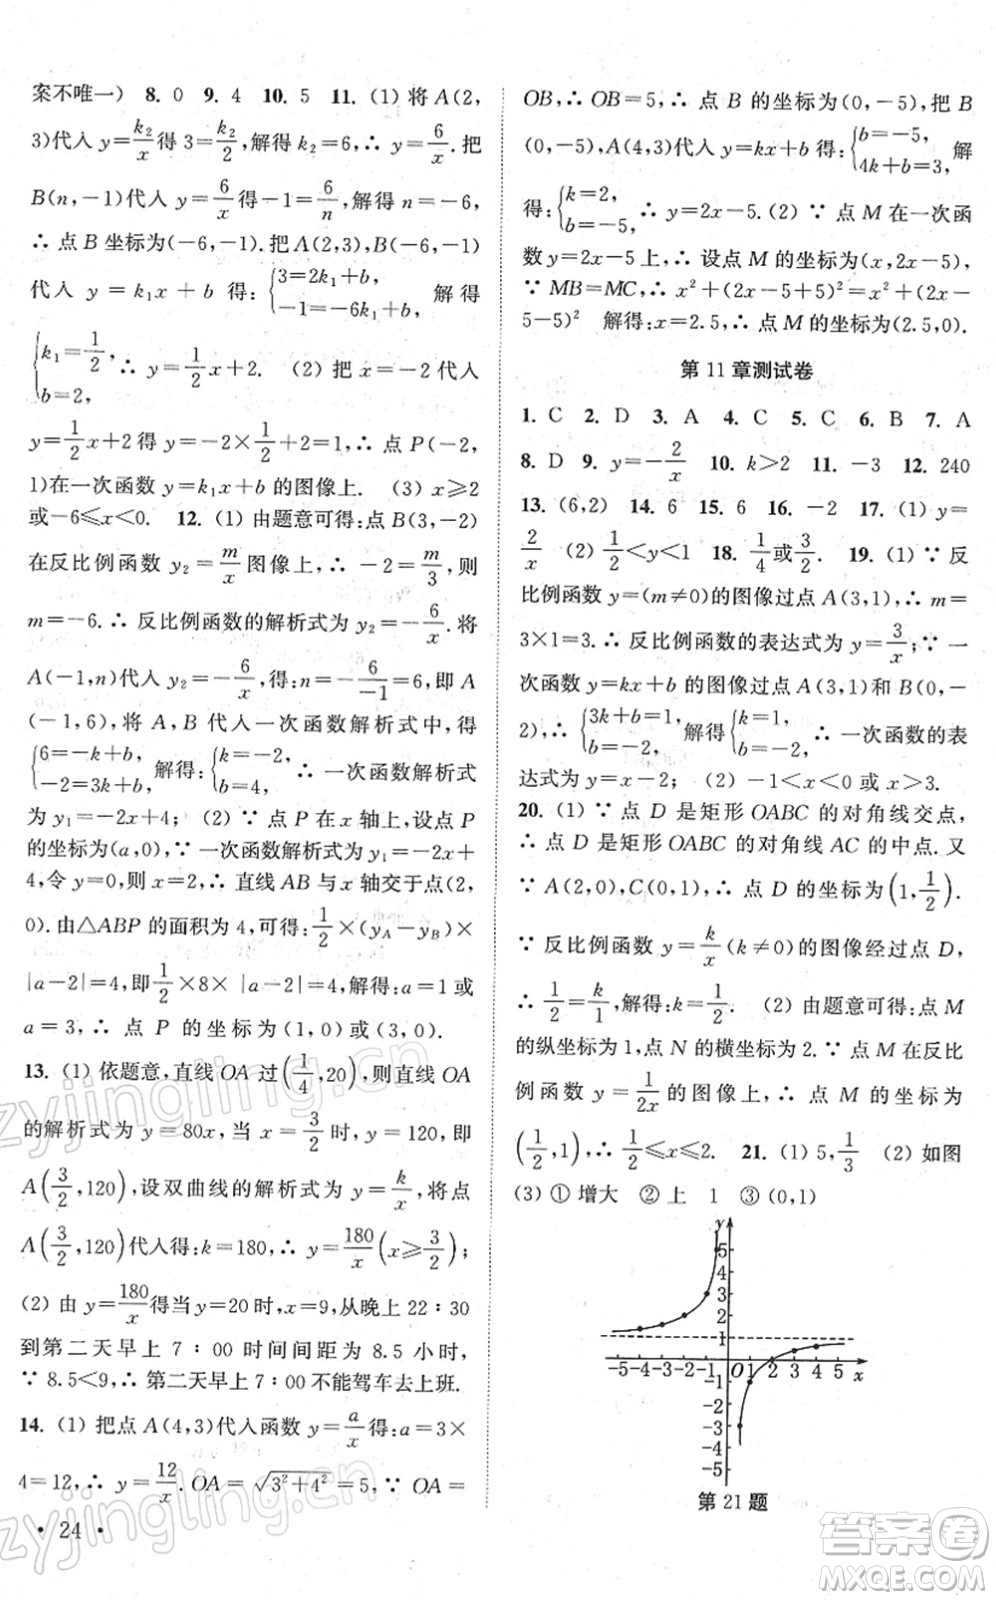 案不唯一) 8. 0 9. 4 10. 5 11. (1) 将 A(2,
3)代入 y=k₂/x 得 3=k₂/2,解得 k₂=6,∴ y=6/x.把
B(n,-1)代入 y=6/x 得-1=6/n,解得 n=-6,
∴ 点 B 坐标为(-6,-1).把 A(2,3),B(-6,-1)
代入 y=k₁x+b 得:{3=2k₁+b, -1=-6k₁+b, 解得
{k₁=1/2, b=2, ∴ y=1/2x+2. (2) 把 x=-2 代入
y=1/2x+2 得 y=-2×1/2+2=1,∴ 点 P(-2,
1)在一次函数 y=k₁x+b 的图像上. (3) x≥2
或-6≤x<0. 12. (1) 由题意可得:点 B(3,-2)
在反比例函数 y₂=m/x 图像上,∴ -2=m/3,则
m=-6.∴ 反比例函数的解析式为 y₂=-6/x.将
A(-1,n)代入 y₂=-6/x 得:n=-6/-1=6,即 A
(-1,6),将 A,B 代入一次函数解析式中,得
{6=-k+b, -2=3k+b, 解得:{k=-2, b=4, ∴ 一次函数解析式
为 y₁=-2x+4; (2) ∵ 点 P 在 x 轴上,设点 P
的坐标为(a,0),∵ 一次函数解析式为 y₁=-2x+
4,令 y=0,则 x=2,∴ 直线 AB 与 x 轴交于点(2,
0).由△ABP 的面积为 4,可得:1/2×(yA-yB)×
|a-2|=4,即1/2×8×|a-2|=4,解得:a=1 或
a=3,∴ 点 P 的坐标为(1,0)或(3,0).
13. (1) 依题意,直线 OA 过(1/4,20),则直线 OA
的解析式为 y=80x,当 x=3/2 时,y=120,即
A(3/2,120),设双曲线的解析式为 y=k/x,将点
A(3/2,120)代入得:k=180,∴ y=180/x(x≥3/2);
(2) 由 y=180/x得当 y=20 时,x=9,从晚上 22:30
到第二天早上 7:00 时间间距为 8.5 小时,
∵ 8.5<9,∴ 第二天早上 7:00 不能驾车去上班.
14. (1) 把点 A(4,3)代入函数 y=a/x得:a=3×
4=12,∴ y=12/x.OA=√3²+4²=5,∵ OA=
• 24 •
OB,∴ OB=5,∴ 点 B 的坐标为(0,-5),把 B
(0,-5),A(4,3)代入 y=kx+b 得:{b=-5, 4k+b=3, 解
得:{k=2, b=-5, ∴ y=2x-5.(2) ∵ 点 M 在一次函
数 y=2x-5 上,∴ 设点 M 的坐标为(x,2x-5),
∵ MB=MC,∴ x²+(2x-5+5)²=x²+(2x-
5-5)² 解得:x=2.5,∴ 点 M 的坐标为(2.5,0).
第 11 章测试卷
1. C 2. D 3. A 4. C 5. C 6. B 7. A
8. D 9. y=-2/x 10. k>2 11. -3 12. 240
13. (6,2) 14. 6 15. 6 16. -2 17. (1) y=
2/x (2) 1/2<y<1 18. 1/4或3/2. 19. (1) ∵ 反
比例函数 y=(m≠0)的图像过点 A(3,1),∴ m=
3×1=3.∴ 反比例函数的表达式为 y=3/x;∵ 一
次函数 y=kx+b 的图像过点 A(3,1)和 B(0,-
2),∴ {3k+b=1, b=-2, 解得{k=1, b=-2, ∴ 一次函数的表
达式为 y=x-2; (2) -1<x<0 或 x>3.
20. (1) ∵ 点 D 是矩形 OABC 的对角线交点,
∴ 点 D 是矩形 OABC 的对角线 AC 的中点.又
∵ A(2,0),C(0,1),∴ 点 D 的坐标为(1,1/2).
∵ 反比例函数 y=k/x(k≠0)的图像经过点 D,
∴ 1/2=k/1,解得:k=1/2. (2) 由题意可得:点 M
的纵坐标为 1,点 N 的横坐标为 2.∵ 点 M 在反比
例函数 y=1/2x 的图像上,∴ 点 M 的坐标为
(1/2,1),∴ 1/2≤x≤2. 21. (1) 5,1/3 (2) 如图
(3) ① 增大 ② 上 1 ③ (0,1)
y
5
4
3
2
1
-5 -4 -3 -2 -1 O 1 2 3 4 5 x
-1
-2
-3
-4
-5
第 21 题
zyjingling.cn
zyjingling.cn
答案圈
MXQE.COM